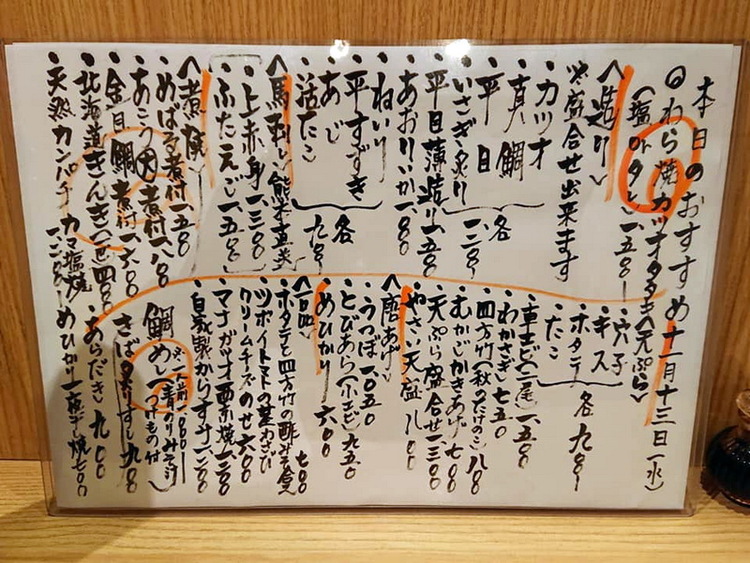 本日のおすすめ 十一月十三日(水)
◎わら焼カツオタタキ
(塩orタレ)一、五〇〇
〈造り〉
※盛合せ出来ます
・カツオ
・真鯛
・平目
・いさぎ炙り
各一、二〇〇
・平目薄造り 一、五〇〇
・あおりいか 一、一〇〇
・ねいり
・平すずき
・あじ
・活たこ
各九〇〇
〈馬刺し 熊本直送〉
・上赤身 一、三〇〇
・ふたえご 一、五〇〇
〈煮・焼〉
・めばる煮付 一、五〇〇
・あこう大煮付 一、八〇〇
・金目鯛煮付 一、六〇〇
・北海道きんき(一匹)四、〇〇〇
・天然カンパチ カマ塩焼 一、二〇〇
〈天ぷら〉
・穴子
・キス
・ホタテ
・たこ
各九〇〇
・車エビ(二尾)一、五〇〇
・わかさぎ 七五〇
・四方竹(秋のたけのこ)八〇〇
・むかごかきあげ 七〇〇
・天ぷら盛合せ 一、三〇〇
・やさい天盛 八〇〇
〈唐あげ〉
・うつぼ 一、〇五〇
・とびあら(小エビ)九五〇
・めひかり 六〇〇
〈一品〉
・ホタテと四方竹の酢みそ合え 七〇〇
・ツボイトマトの葉わさび
クリームチーズのせ 六〇〇
・マナガツオ西京焼 一、三〇〇
・自家製からすみ 一、二〇〇
鯛めし
※(一人前)一、〇〇〇
(青のりみそ汁
つけもの付)
さば炙りすし 九〇〇
・あらだき 九〇〇
・めひかり一夜干し焼 七〇〇